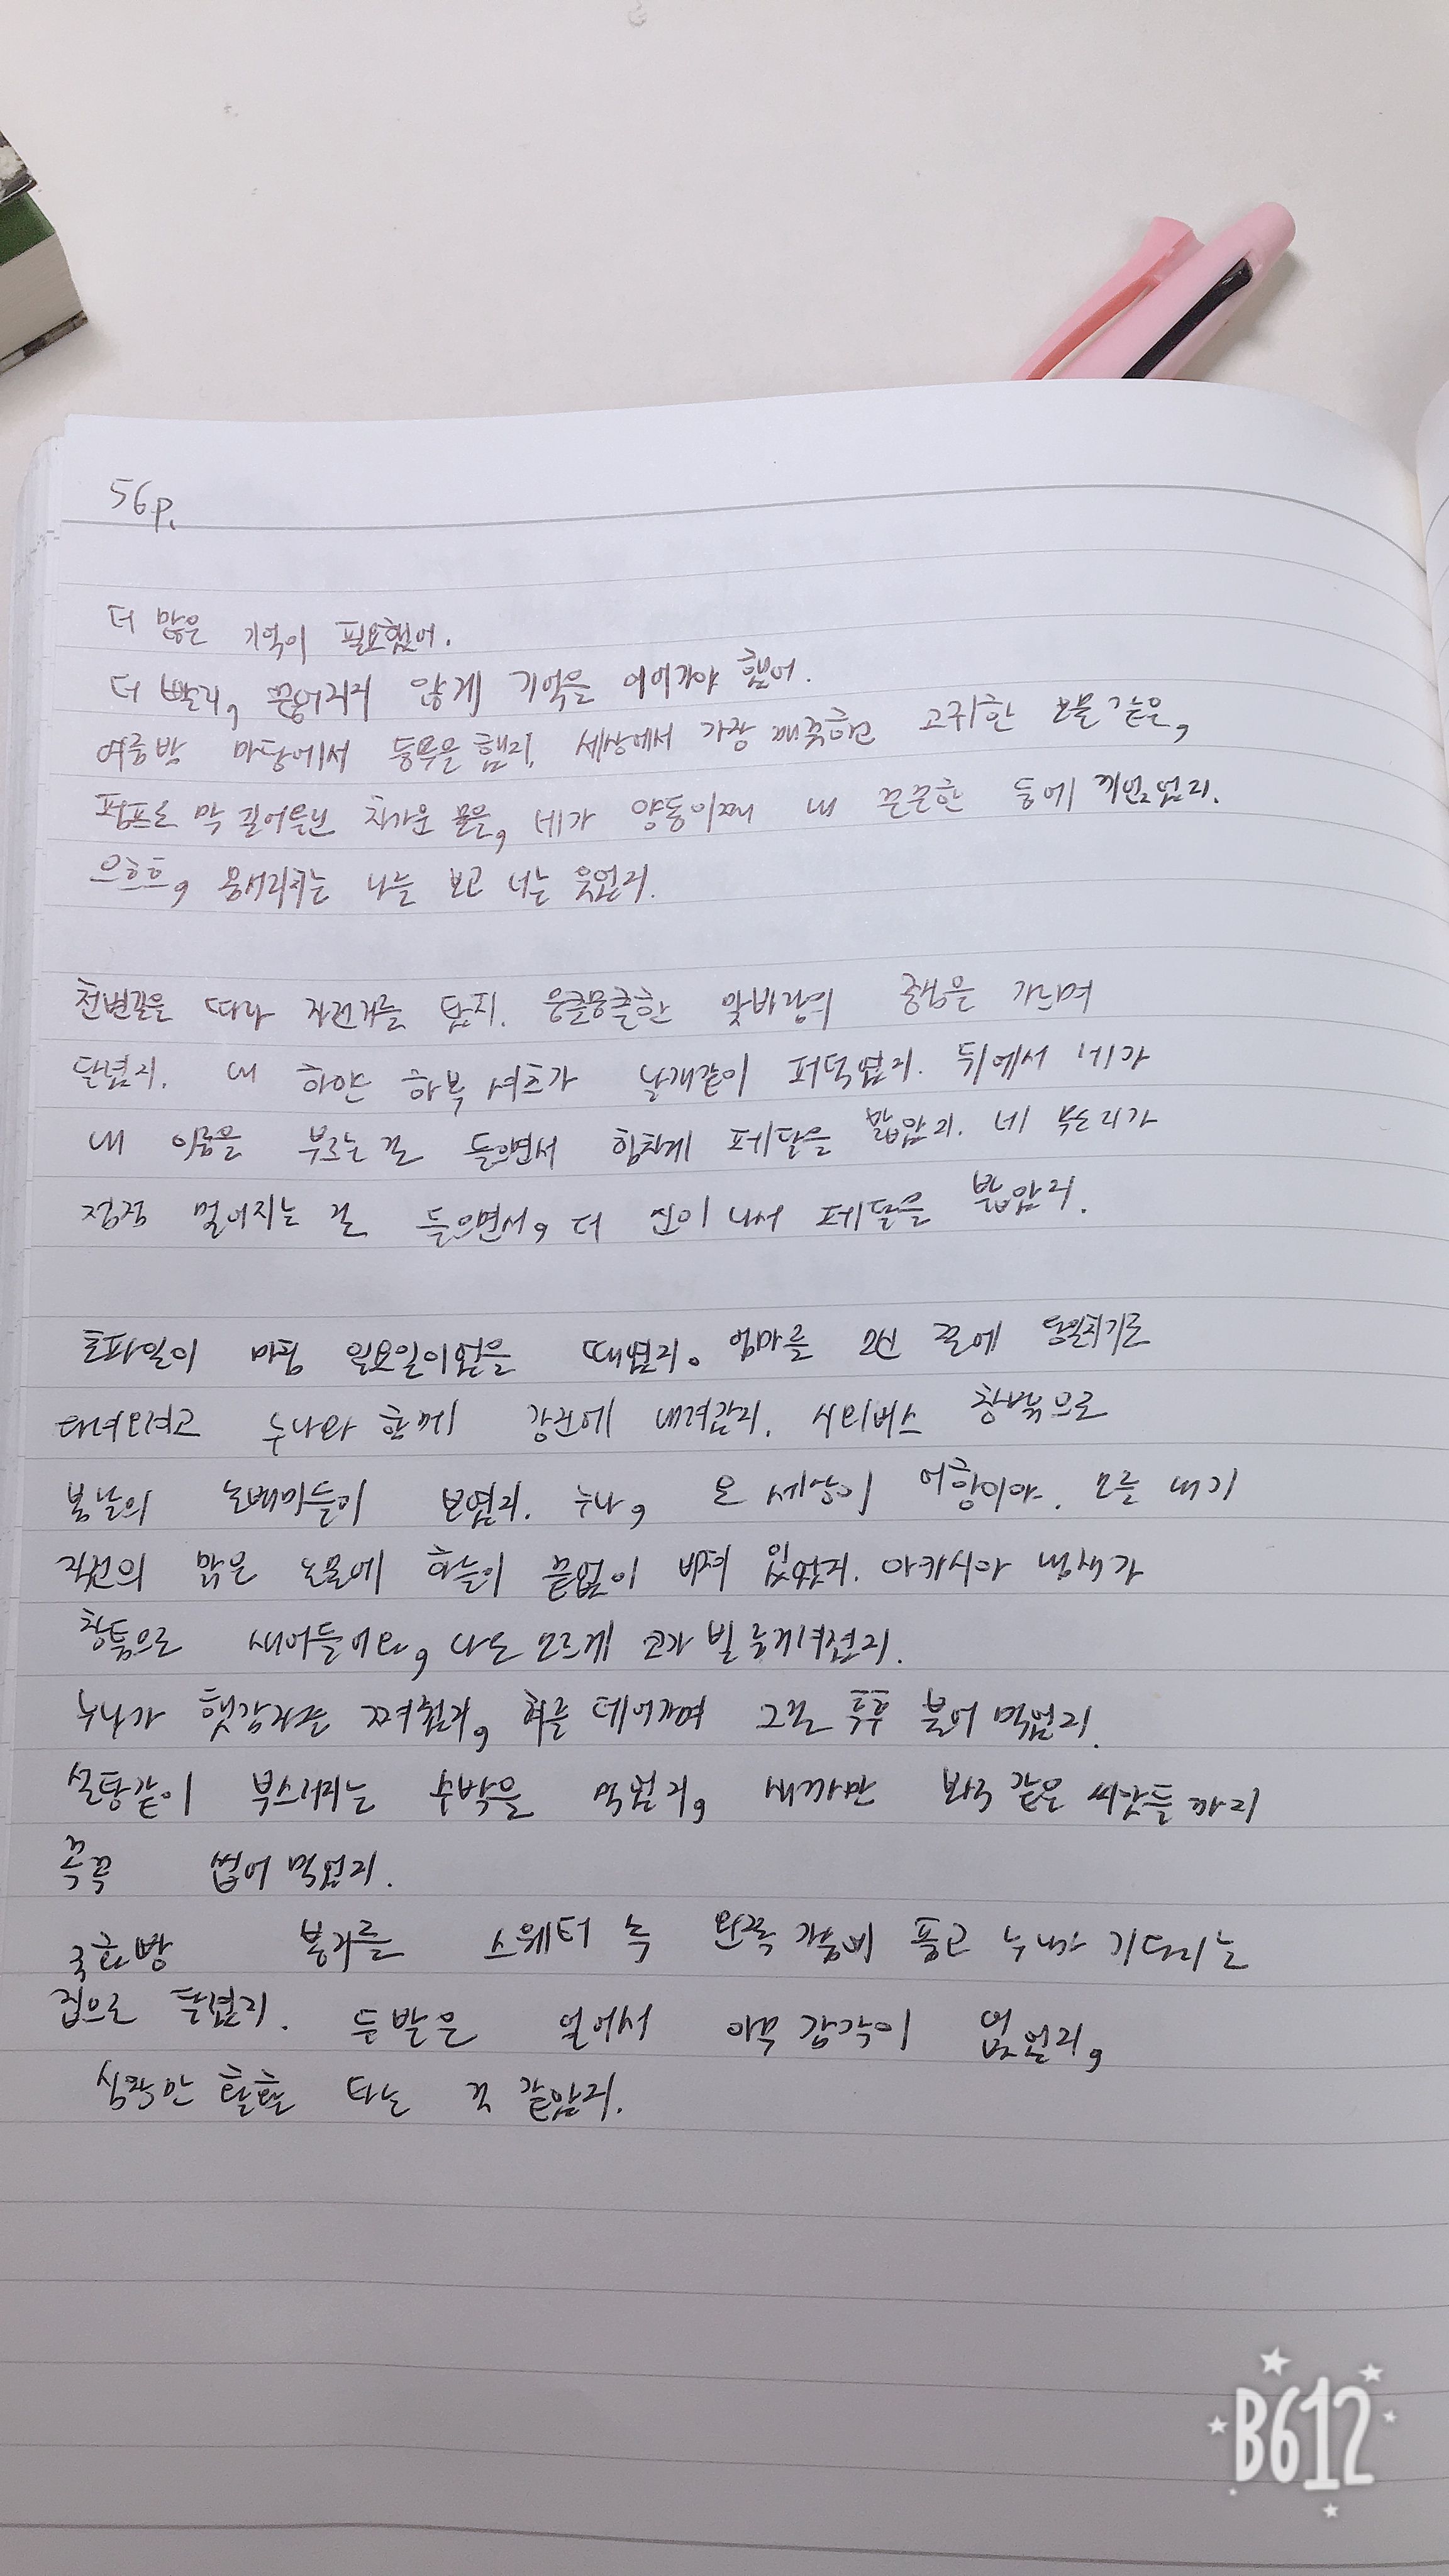 56p.
더 많은 기억이 필요했어.
더 빨리, 끊어지지 않게 기억을 이어가야 했어.
여름밤 마당에서 등목을 했지. 세상에서 가장 깨끗하고 고귀한 보물 같은,
펌프로 막 길어올린 차가운 물을, 네가 양동이째 내 끈끈한 등에 끼얹었지.
으흐흐, 몸서리치는 나를 보고 너는 웃었지.
천변길을 따라 자전거를 탔지. 뭉클뭉클한 맞바람의 중심을 가르며
달렸지. 내 하얀 하복 셔츠가 날개같이 퍼덕였지. 뒤에서 네가
내 이름을 부르는 걸 들으면서 힘차게 페달을 밟았지. 네 목소리가
점점 멀어지는 걸 들으면서, 더 신이 나서 페달을 밟았지.
초파일이 마침 일요일이었을 때였지. 엄마를 모신 절에 당일치기로
다녀오려고 누나와 함께 강진에 내려갔지. 시외버스 창밖으로
봄날의 논배미들이 보였지. 누나, 온 세상이 어항이야. 모를 내기
직전의 맑은 논물에 하늘이 끝없이 비쳐 있었지. 아카시아 냄새가
창틈으로 새어들어와, 나도 모르게 코가 벌름거려졌지.
누나가 햇감자를 쪄줬지, 혀를 데어가며 그걸 후후 불어 먹었지.
설탕같이 부스러지는 수박을 먹었지, 새까만 보석 같은 씨앗들까지
꼭꼭 씹어 먹었지.
국화빵 봉지를 스웨터 속 왼쪽 가슴에 품고 누나가 기다리는
집으로 달렸지. 두 발은 얼어서 아무 감각이 없었지,
심장만 활활 타는 것 같았지.
B612